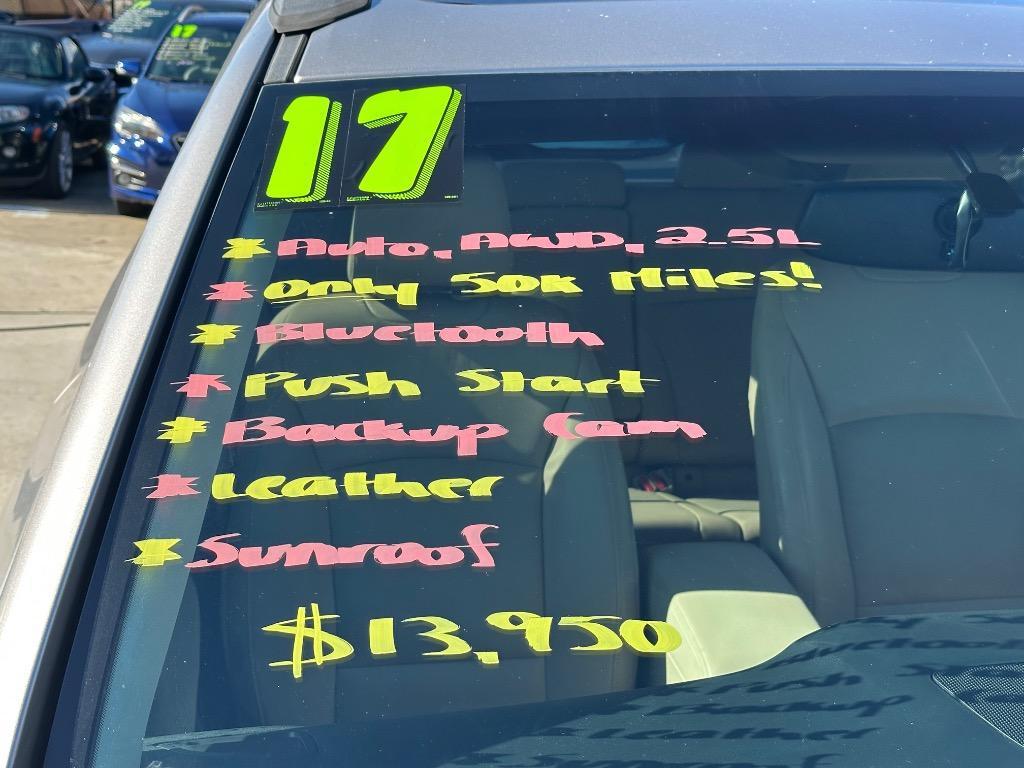 17
* Auto, AWD, 2.5L
* Only 50K Miles!
* Bluetooth
* Push Start
* Backup Cam
* Leather
* Sunroof
$13,950
17